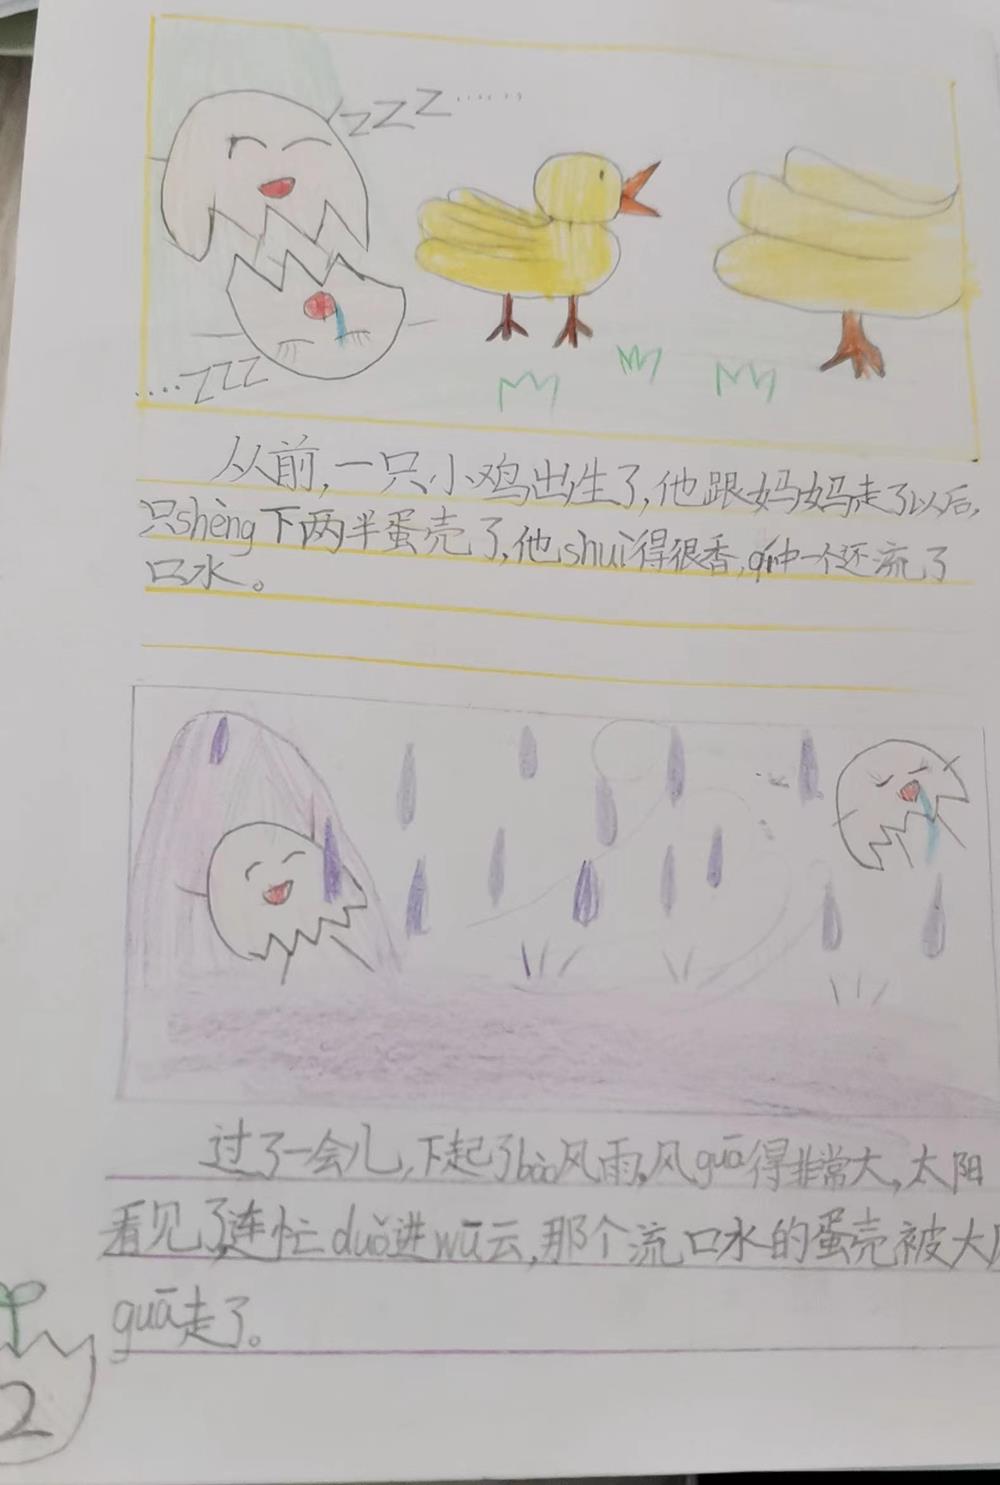 zzz......
....zzz
从前，一只小鸡出生了，他跟妈妈走了以后，
只shèng下两半蛋壳了，他shuì得很香，qí中一个还流了
口水。
过了一会儿，下起了bào风雨，风guā得非常大，太阳
看见了连忙duǒ进wū云，那个流口水的蛋壳被大
guā走了。
2